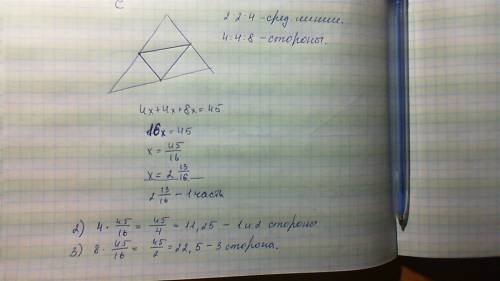 C
2:2:4 - сред линии.
4:4:8 - стороны.
4x+4x+8x=45
16x=45
x = 45/16
x = 2 13/16
2 13/16 - 1 часть
2) 4 · 45/16 = 45/4 = 11,25 - 1 и 2 стороны
3) 8 · 45/16 = 45/2 = 22,5 - 3 сторона.